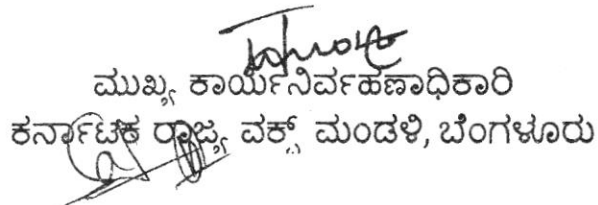 ಮುಖ್ಯ ಕಾರ್ಯನಿರ್ವಹಣಾಧಿಕಾರಿ
ಕರ್ನಾಟಕ ರಾಜ್ಯ ವಕ್ಫ್ ಮಂಡಳಿ, ಬೆಂಗಳೂರು